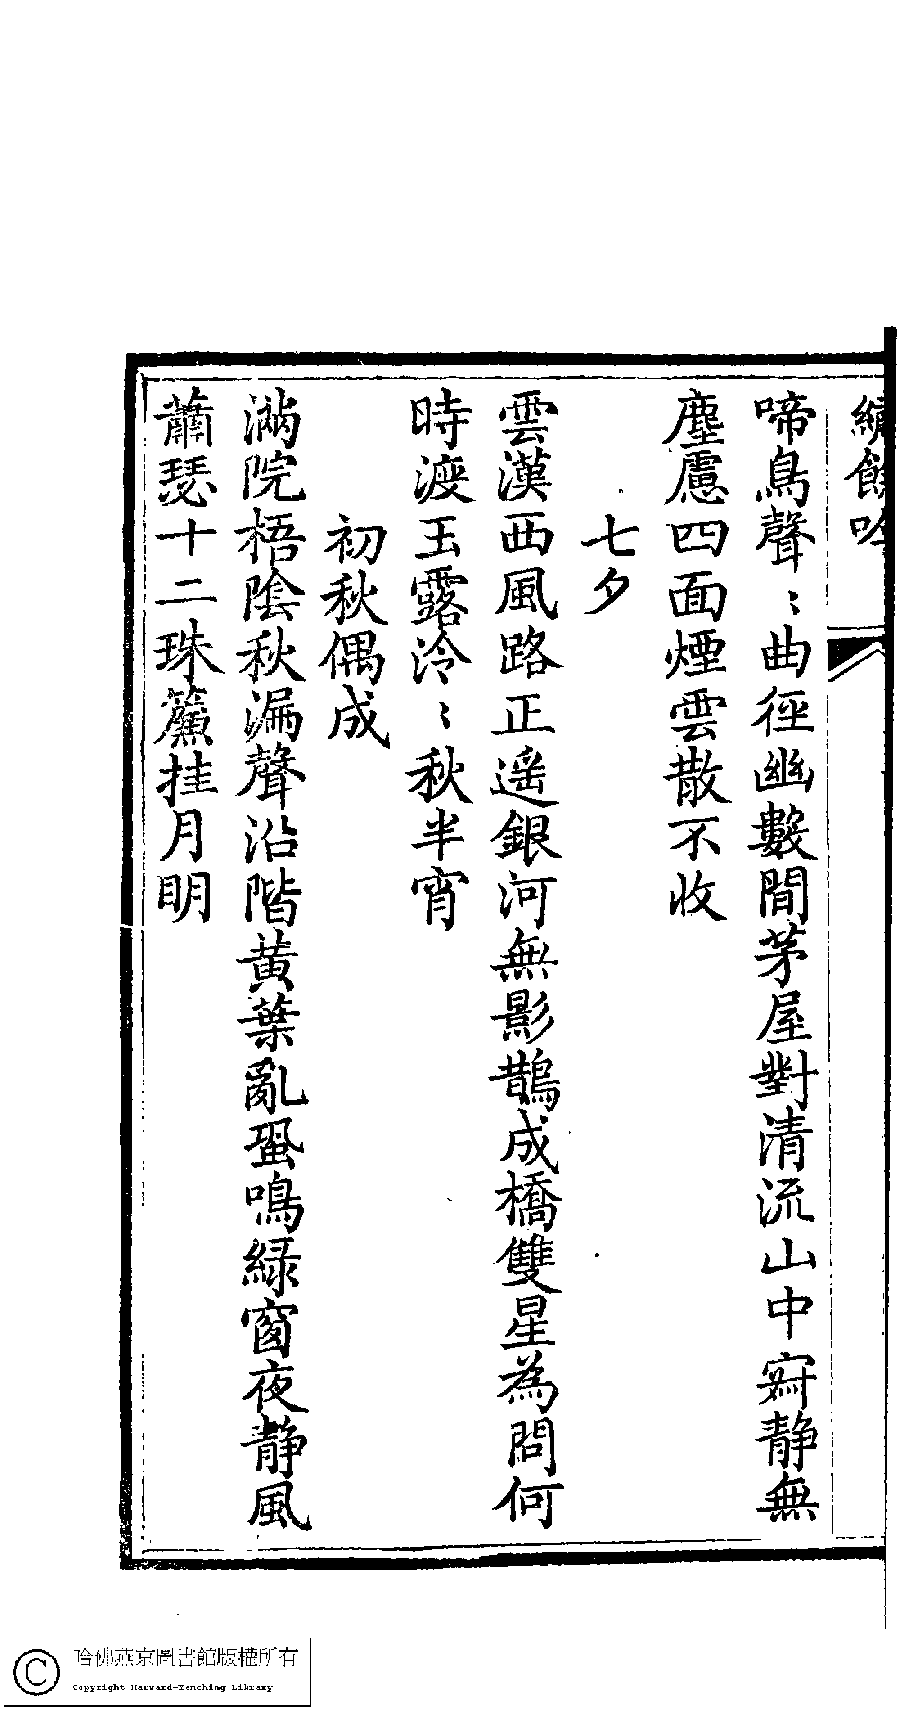 續餘吟
啼鳥聲〻曲徑幽數間茅屋對清流山中寂静無
塵慮四面煙雲散不收
七夕
雲漢西風路正遥銀河無影鵲成橋雙星為問何
時渡玉露泠〻秋半宵
初秋偶成
滿院梧陰秋漏聲沿階黄葉亂蛩鳴緑窗夜静風
蕭瑟十二珠簾挂月明
哈佛燕京圖書館版權所有
Copyright Harvard-Yenching Library